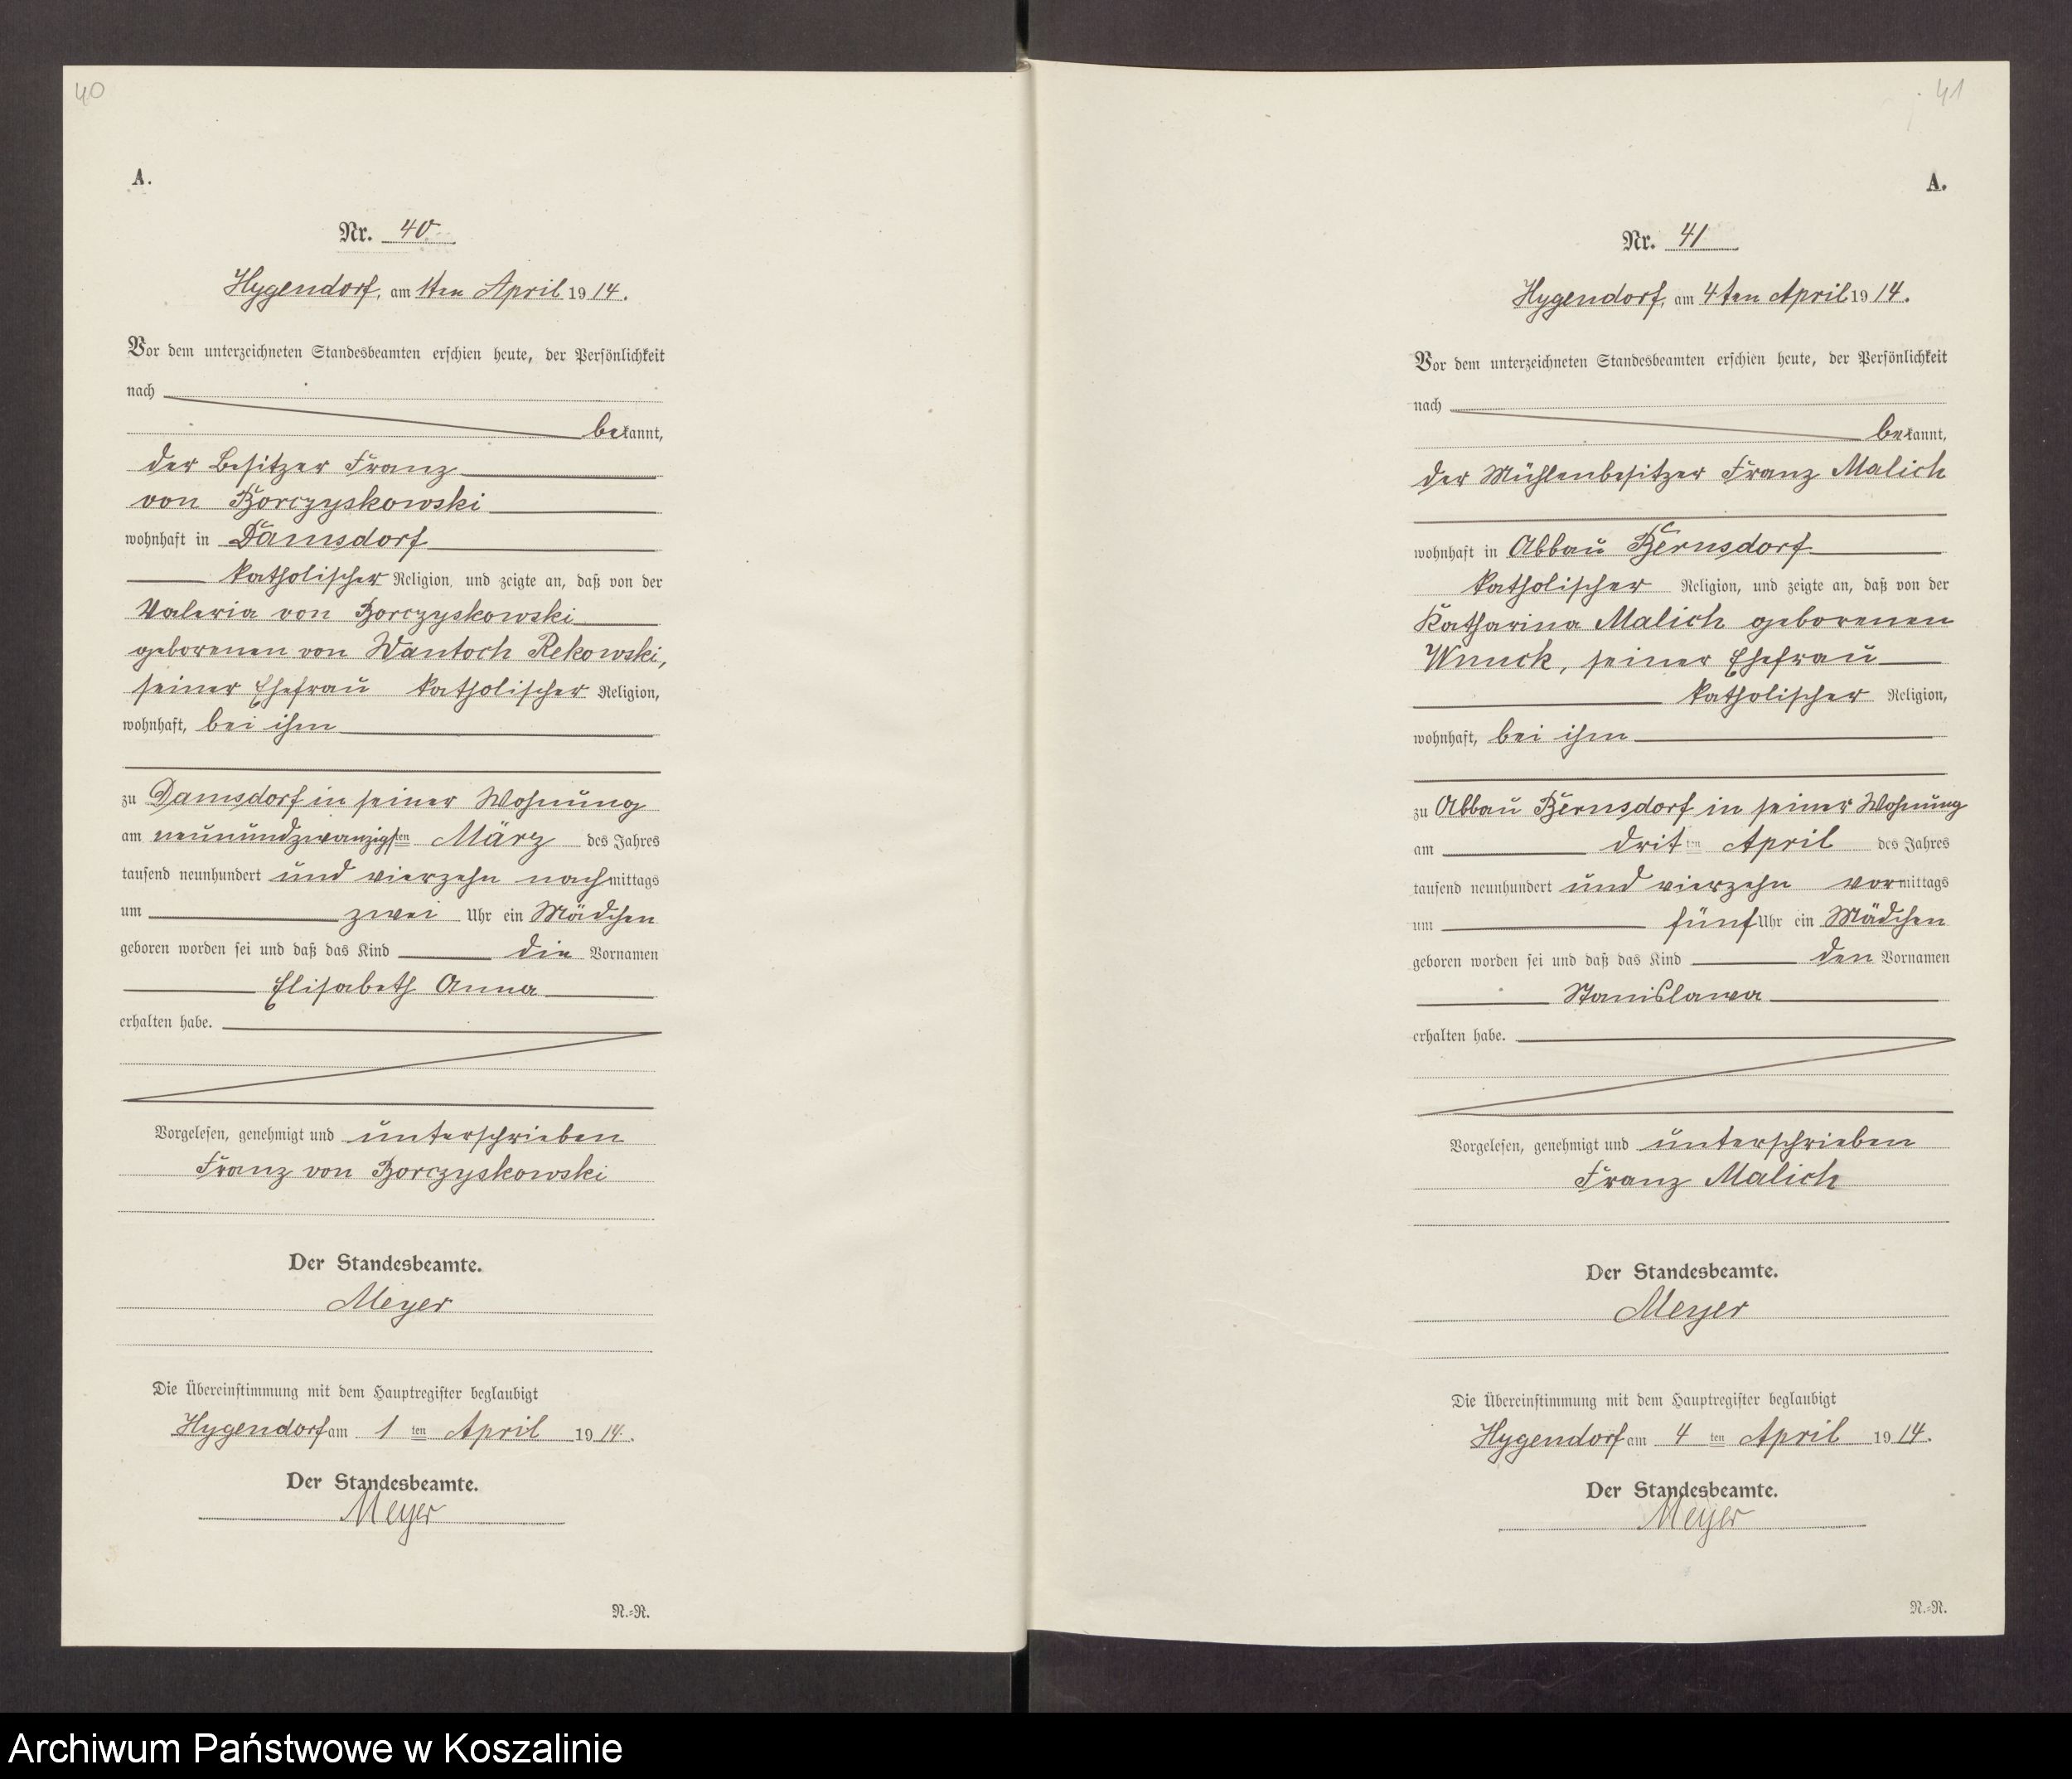 40
A.
Nr. 40
Hygendorf, am 1ten April 1914.
Vor dem unterzeichneten Standesbeamten erschien heute, der Persönlichkeit
nach
bekannt,
der Besitzer Franz
von Borczyskowski
wohnhaft in Damsdorf
katholischer Religion, und zeigte an, daß von der
Valeria von Borczyskowski
geborenen von Wantoch Rekowski,
seiner Ehefrau katholischer Religion,
wohnhaft, bei ihm
zu Damsdorf in seiner Wohnung
am neunundzwanzigsten März des Jahres
tausend neunhundert und vierzehn nachmittags
um zwei Uhr ein Mädchen
geboren worden sei und daß das Kind die Vornamen
Elisabeth Anna
erhalten habe.
Vorgelesen, genehmigt und unterschrieben
Franz von Borczyskowski
Der Standesbeamte.
Meyer
Die Übereinstimmung mit dem Hauptregister beglaubigt
Hygendorf am 1ten April 1914.
Der Standesbeamte.
Meyer
N.=R.
41
A.
Nr. 41
Hygendorf, am 4ten April 1914.
Vor dem unterzeichneten Standesbeamten erschien heute, der Persönlichkeit
nach
bekannt,
der Mühlenbesitzer Franz Malich
wohnhaft in Abbau Bernsdorf
katholischer Religion, und zeigte an, daß von der
Katharina Malich geborenen
Wnuck, seiner Ehefrau
katholischer Religion,
wohnhaft, bei ihm
zu Abbau Bernsdorf in seiner Wohnung
am dritten April des Jahres
tausend neunhundert und vierzehn vormittags
um fünf Uhr ein Mädchen
geboren worden sei und daß das Kind den Vornamen
Stanislawa
erhalten habe.
Vorgelesen, genehmigt und unterschrieben
Franz Malich
Der Standesbeamte.
Meyer
Die Übereinstimmung mit dem Hauptregister beglaubigt
Hygendorf am 4ten April 1914.
Der Standesbeamte.
Meyer
N.=R.
Archiwum Państwowe w Koszalinie